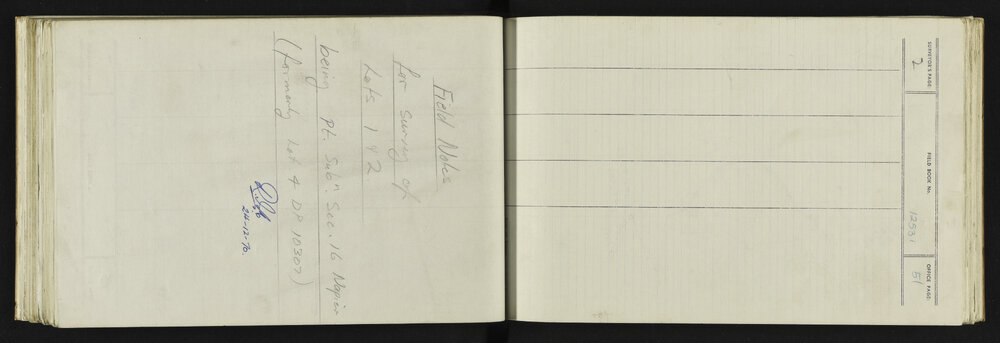 Field Notes
for survey of
Lots 1 & 2
being Pt. Subn. Sec. 16 Napier
(formerly Lot 4 DP 10307)
24-12-70.
SURVEYOR'S PAGE: 2
FIELD BOOK No. 12531
OFFICE PAGE: 51